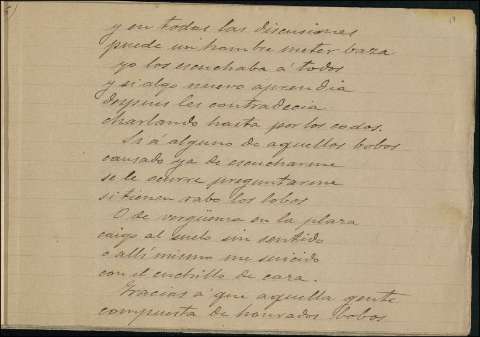 y en todas las discusiones
puede un hombre meter baza
yo los escuchaba á todos
y si algo nuevo aprendia
despues les contradecia
charlando hasta por los codos.
Si á alguno de aquellos bobos
cansado ya de escucharme
se le ocurre preguntarme
si tienen rabo los lobos
O de vergüenza en la plaza
caigo al suelo sin sentido
o alli mismo me suicido
con el cuchillo de caza.
Gracias á que aquella gente
compuesta de honrados bobos